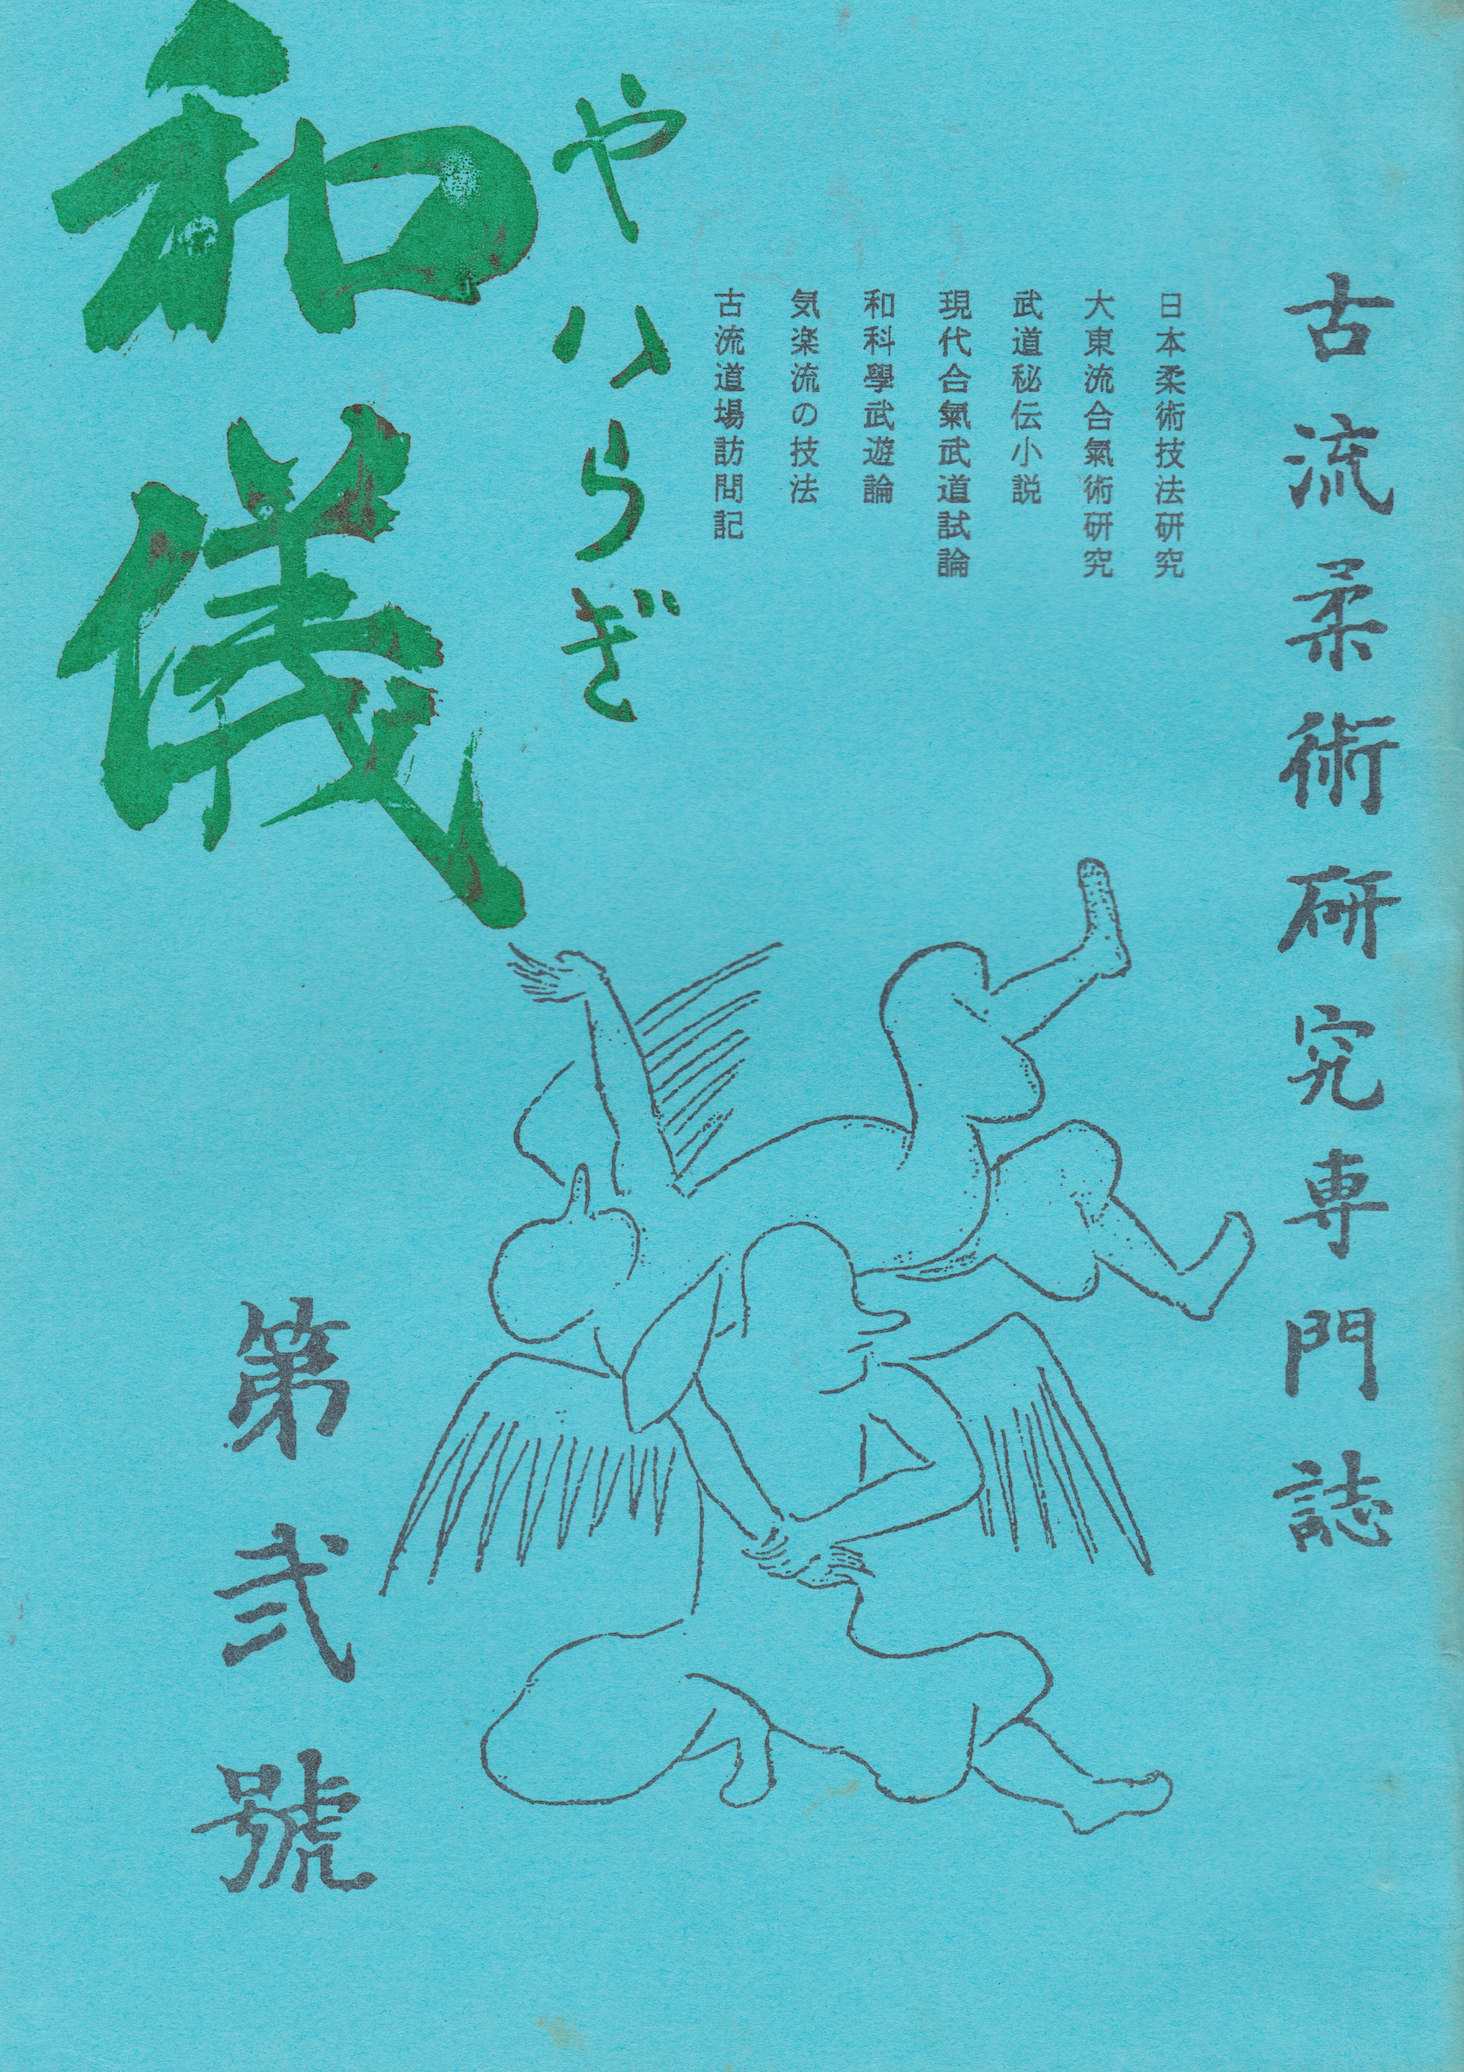 古流柔術研究専門誌
日本柔術技法研究
大東流合氣術研究
武道秘伝小説
現代合氣武道試論
和科學武遊論
気楽流の技法
古流道場訪問記
やハらぎ
和儀
第弐號